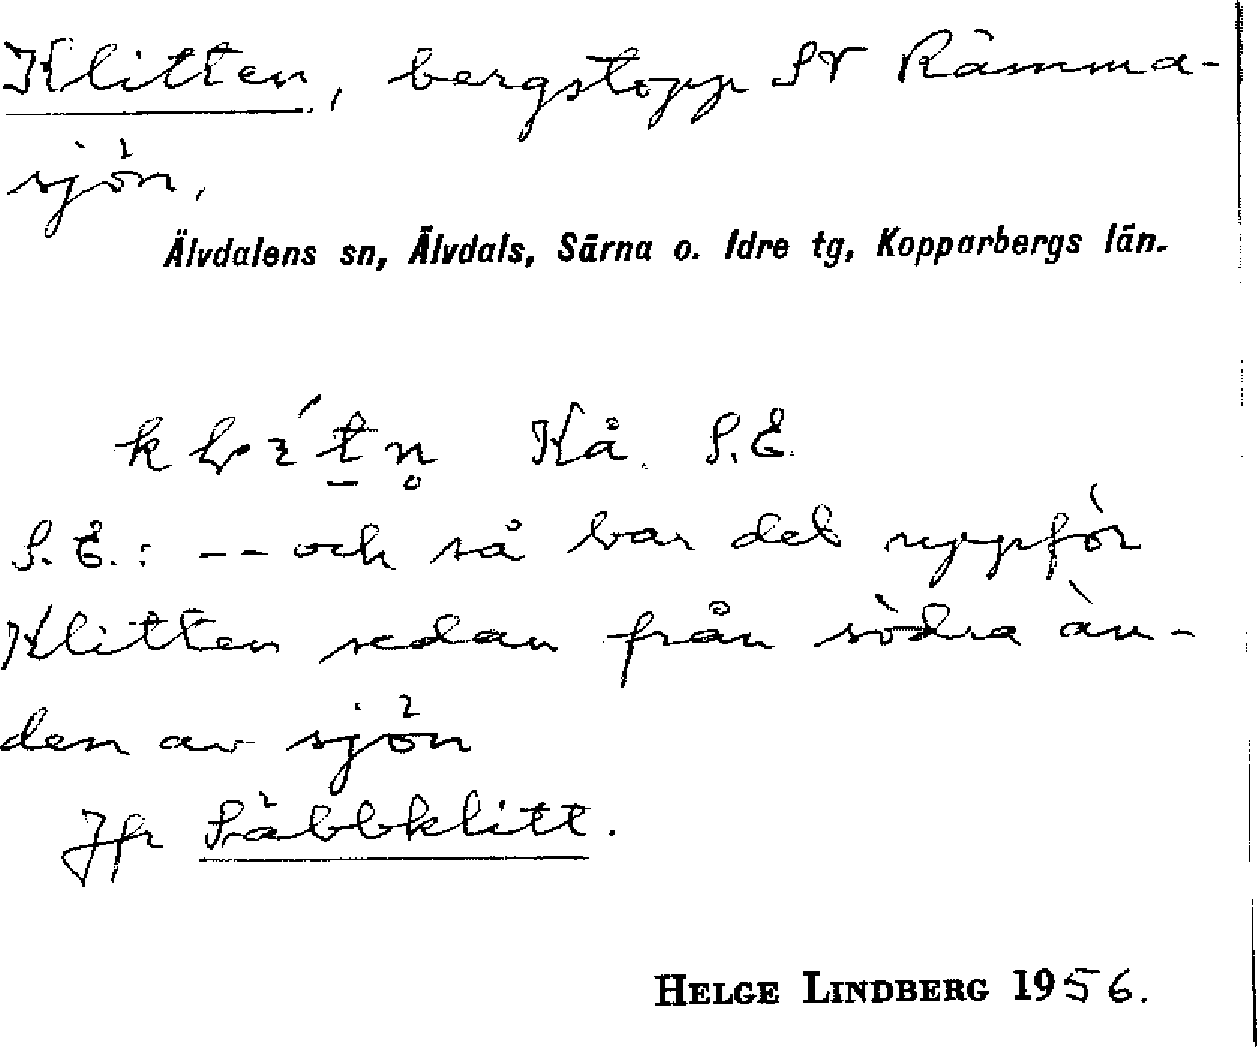 Klitten, bergstopp SV Rämma-
sjön.
Älvdalens sn, Älvdals, Särna o. Idre tg, Kopparbergs län.
Kå. S.E.
S.E.: -- och så bar det uppför
Klitten sedan från södra än-
den av sjön
Jfr Säbbklitt.
HELGE LINDBERG 1956.